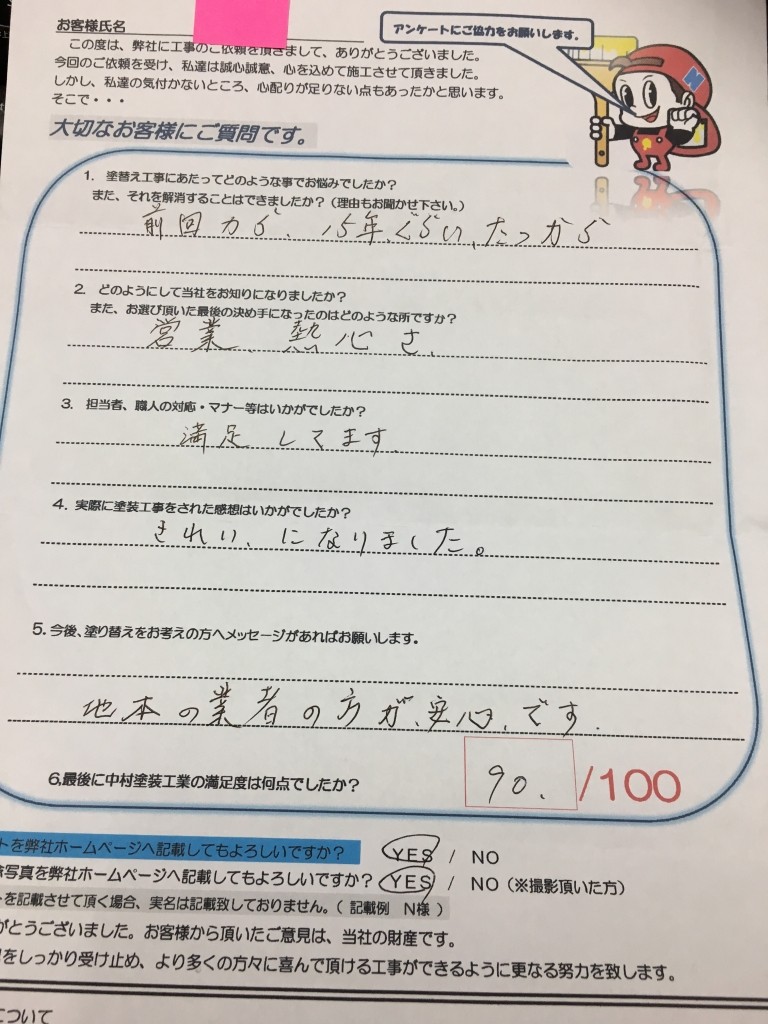 お客様氏名
アンケートにご協力をお願いします。
この度は、弊社に工事のご依頼を頂きまして、ありがとうございました。
今回のご依頼を受け、私達は誠心誠意、心を込めて施工させて頂きました。
しかし、私達の気付かないところ、心配りが足りない点もあったかと思います。
そこで・・・
大切なお客様にご質問です。
1. 塗替え工事にあたってどのような事でお悩みでしたか?
また、それを解消することはできましたか?(理由もお聞かせ下さい。)
前回から、15年ぐらい、たつから
2. どのようにして当社をお知りになりましたか?
また、お選び頂いた最後の決め手になったのはどのような所ですか?
営業、熱心さ、
3. 担当者、職人の対応・マナー等はいかがでしたか?
満足してます。
4. 実際に塗装工事をされた感想はいかがでしたか?
きれい、になりました。
5. 今後、塗り替えをお考えの方へメッセージがあればお願いします。
地本の業者の方が、安心、です.
6.最後に中村塗装工業の満足度は何点でしたか?
90. /100
トを弊社ホームページへ記載してもよろしいですか? YES / NO
写真を弊社ホームページへ記載してもよろしいですか? YES / NO(※撮影頂いた方)
を記載させて頂く場合、実名は記載致しておりません。( 記載例 N様 )
がとうございました。お客様から頂いたご意見は、当社の財産です。
をしっかり受け止め、より多くの方々に喜んで頂ける工事ができるように更なる努力を致します。
について